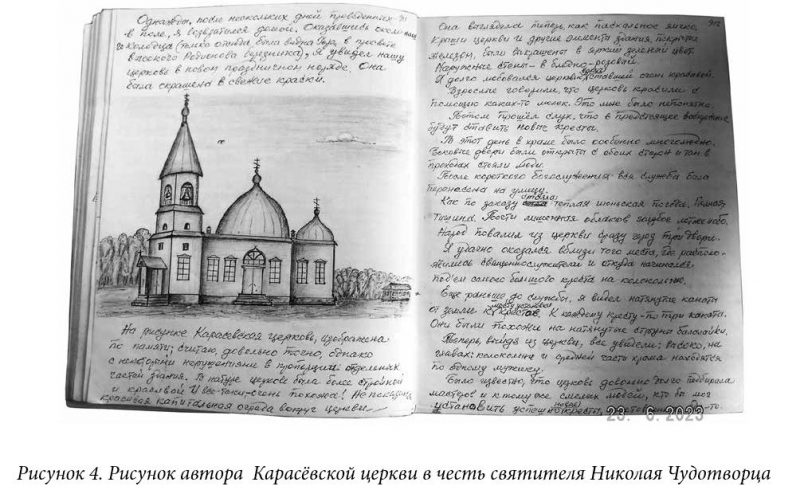 Однажды, после нескольких дней проведенных
в поле, я возвратился домой. Оказавшись около
(только отсюда была видна вся, в просвете
высокого), я увидел нашу
церковь в новом праздничном наряде. Она
была окрашена в свежие краски.
На рисунке Карасевская церковь, изображена
по памяти; считаю, довольно точно, однако
с некоторыми нарушениями в пропорции отдельных
частей здания. В натуре церковь была более стройной
и красивой. И все-таки-очень похоже! Не показана
красивая капитальная ограда вокруг церкви.
912
Она выглядела теперь, как пасхальное яичко.
Крыши церкви и другие элементы здания, покрытые
железом, были окрашены в яркий зеленый цвет.
Наружные стены - в бледно-розовый.
Я долго любовался церковью ставшей очень красивой.
Взрослые говорили, что церковь красили с
помощью каких-то люлек. Это мне было непонятно.
Потом прошёл слух, что в предстоящее воскресение
будут ставить новые кресты.
В этот день в храме было особенно многолюдно.
Боковые двери были открыты с обоих сторон и там в
проходах стояли люди.
После короткого богослужения вся служба была
перенесена на улицу.
Как по заказу стояла теплая июньская погода. Полная
тишина. Почти лишенное облаков голубое летнее небо.
Народ повалил из церкви сразу через три двери.
Я удачно оказался вблизи того места, где располо-
жились священнослужители и откуда начинался
подъем самого большого креста на колокольню.
Еще раньше до службы, я видел натянутые канаты
от земли к крестам. К каждому кресту-по три каната.
Они были похожи на натянутые струны балалайки.
Теперь, выйдя из церкви, все увидели: высоко, на
главах: колокольни и средней части храма находятся
по одному мужику.
Было известно, что церковь довольно долго подбирала
мастеров и к тому же смелых людей, кто бы мог
установить успешно новые кресты,
23. 6. 2023
Рисунок 4. Рисунок автора Карасёвской церкви в честь святителя Николая Чудотворца